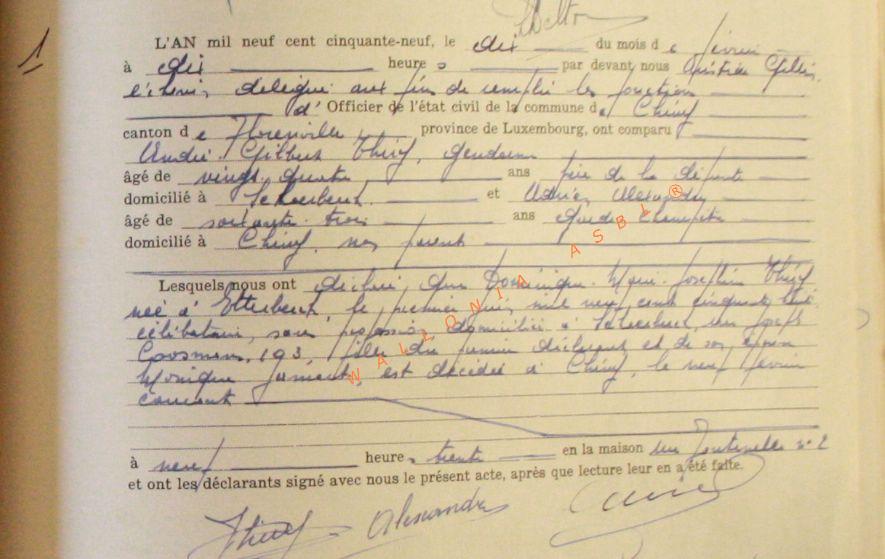 1
L'AN mil neuf cent cinquante-neuf, le dix du mois de février
à dix heure s par devant nous
délégué aux fins de remplir les fonctions
d' Officier de l'état civil de la commune de Chiny
canton de Florenville province de Luxembourg, ont comparu
André Gilbert Thiry, gendarme
âgé de vingt quatre ans père de la défunte
domicilié à et Alexandre
âgé de soixante trois ans garde champêtre
domicilié à Chiny, non parent
Lesquels nous ont déclaré que Dominique Marie Joséphine Thiry
née à Etterbeek, le premier mil neuf cent cinquante huit
célibataire, sans profession domiciliée à
193, fille du premier déclarant et de son épouse
Monique est décédée à Chiny, le neuf février
courant
à neuf heure s trente en la maison rue Fontenelle n° 2
et ont les déclarants signé avec nous le présent acte, après que lecture leur en a été faite.
Thiry Alexandre
WALLONIA ASBL ®